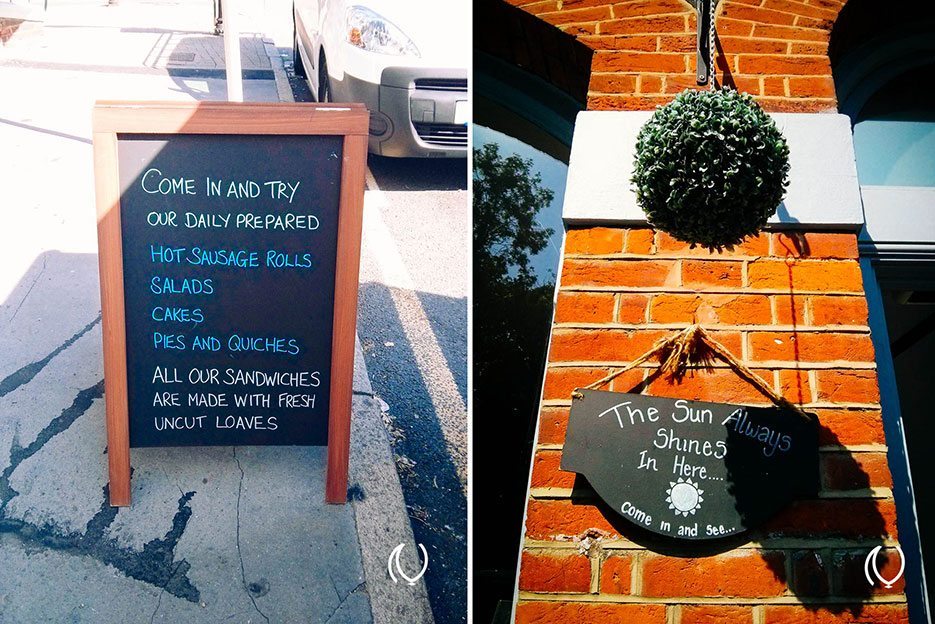 COME IN AND TRY
OUR DAILY PREPARED
HOT SAUSAGE ROLLS
SALADS
CAKES
PIES AND QUICHES
ALL OUR SANDWICHES
ARE MADE WITH FRESH
UNCUT LOAVES
The Sun Always
Shines
In Here....
come in and see...